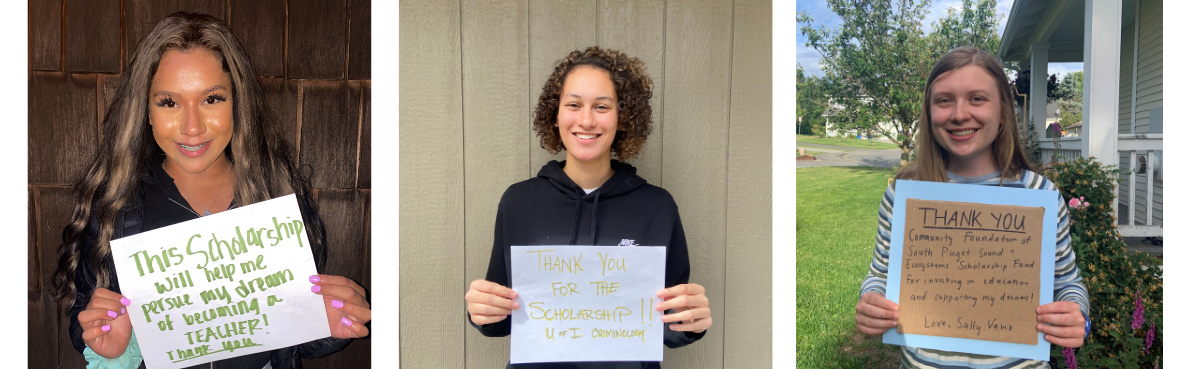 This Scholarship
will help me
persue my dream
of becoming a
TEACHER!
Thank you
THANK YOU
FOR THE
SCHOLARSHIP!!
U OF I CRIMINOLOGY
NIKE
THANK YOU
Community Foundation of
South Puget Sound -
Ecosystems Scholarship Fund
for investing in education
and supporting my dreams!
Love, Sally Vaux